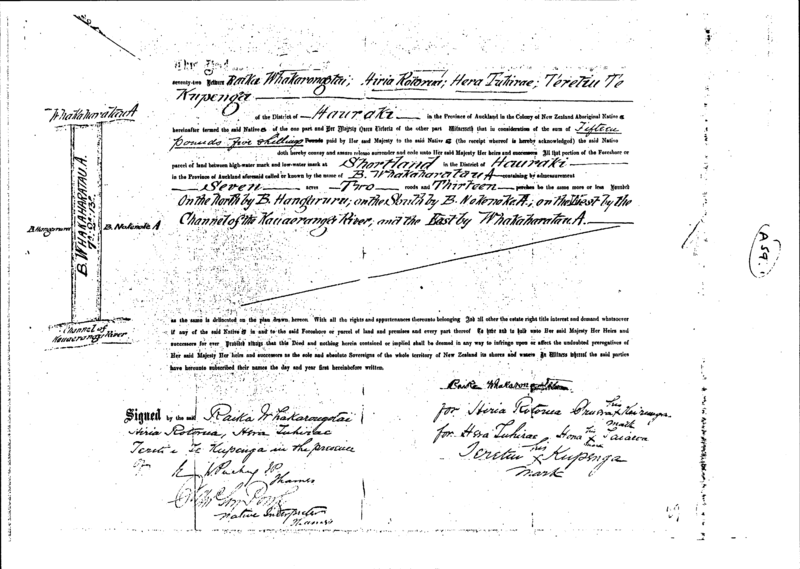 This Deed
seventy-two Between Raika Whakarongotai; Hiria Rotorua; Hera Tuhirae; Teretiu Te
Kupenga
of the District of Hauraki in the Province of Auckland in the Colony of New Zealand Aboriginal Natives
hereinafter termed the said Natives of the one part and Her Majesty Queen Victoria of the other part Witnesseth that in consideration of the sum of Fifteen
pounds five shillings Pounds paid by Her said Majesty to the said Natives (the receipt whereof is hereby acknowledged) the said Natives
doth hereby convey and assure release surrender and cede unto Her said Majesty Her heirs and successors All that portion of the Foreshore or
parcel of land between high-water mark and low-water mark at Shortland in the District of Hauraki
in the Province of Auckland aforesaid called or known by the name of B. Whakaharatau A containing by admeasurement
Seven acres Two roods and Thirteen perches be the same more or less Bounded
On the North by B. Hangaruru; on the South by B. Nokenoke A; on the West by the
Channel of the Kauaeranga River, and the East by Whakaharatau A.
Whakaharatau A
B. WHAKAHARATAU. A.
7a. 2r. 13p.
B. Hangaruru
B. Nokenoke A
Channel of
Kauaeranga River
A 59.
as the same is delineated on the plan drawn hereon With all the rights and appurtenances thereunto belonging And all other the estate right title interest and demand whatsoever
if any of the said Natives in and to the said Foreshore or parcel of land and premises and every part thereof To have and to hold unto Her said Majesty Her Heirs and
successors for ever Provided always that this Deed and nothing herein contained or implied shall be deemed in any way to infringe upon or affect the undoubted prerogatives of
Her said Majesty Her heirs and successors as the sole and absolute Sovereigns of the whole territory of New Zealand its shores and waters In Witness whereof the said parties
have hereunto subscribed their names the day and year first hereinbefore written.
Raika Whakarongotai
Signed by the said Raika Whakarongotai
Hiria Rotorua, Hera Tuhirae
Teretiu Te Kupenga in the presence
of
E W Puckey JP
Thames
Native Interpreter
Thames
for Hiria Rotorua his
mark
for Hera Tuhirae, Hona his x
Teretiu his x Kupenga
mark